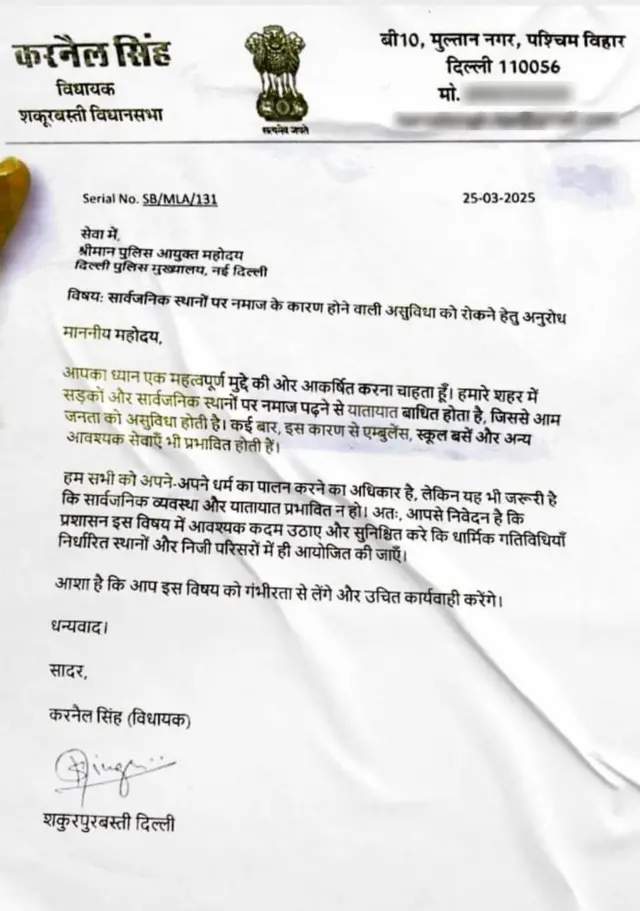 करनैल सिंह
विधायक
शकूरबस्ती विधानसभा
सत्यमेव जयते
बी10, मुल्तान नगर, पश्चिम विहार
दिल्ली 110056
मो.
Serial No. SB/MLA/131
25-03-2025
सेवा में,
श्रीमान पुलिस आयुक्त महोदय
दिल्ली पुलिस मुख्यालय, नई दिल्ली
विषय: सार्वजनिक स्थानों पर नमाज के कारण होने वाली असुविधा को रोकने हेतु अनुरोध
माननीय महोदय,
आपका ध्यान एक महत्वपूर्ण मुद्दे की ओर आकर्षित करना चाहता हूँ। हमारे शहर में
सड़कों और सार्वजनिक स्थानों पर नमाज पढ़ने से यातायात बाधित होता है, जिससे आम
जनता को असुविधा होती है। कई बार, इस कारण से एम्बुलेंस, स्कूल बसें और अन्य
आवश्यक सेवाएँ भी प्रभावित होती हैं।
हम सभी को अपने-अपने धर्म का पालन करने का अधिकार है, लेकिन यह भी जरूरी है
कि सार्वजनिक व्यवस्था और यातायात प्रभावित न हो। अतः, आपसे निवेदन है कि
प्रशासन इस विषय में आवश्यक कदम उठाए और सुनिश्चित करे कि धार्मिक गतिविधियाँ
निर्धारित स्थानों और निजी परिसरों में ही आयोजित की जाएँ।
आशा है कि आप इस विषय को गंभीरता से लेंगे और उचित कार्यवाही करेंगे।
धन्यवाद।
सादर,
करनैल सिंह (विधायक)
शकुरपुरबस्ती दिल्ली